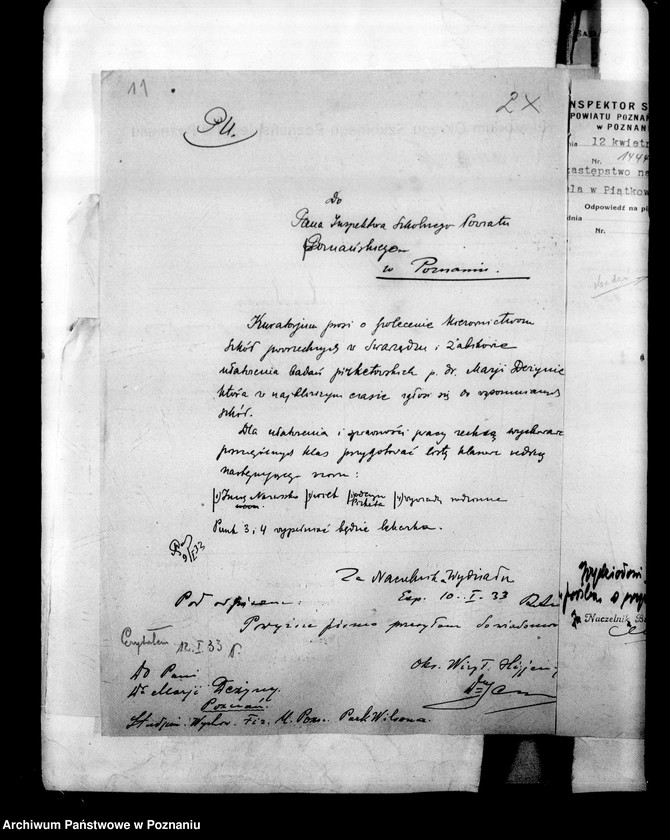 11
2 X
Do
Pana Inspektora Szkolnego Powiatu
Poznańskiego
w Poznaniu.
Kuratorjum prosi o polecenie Kierownictwom
szkół powszechnych w Swarzędzu i Żabikowie
ułatwienia badań pirketowskich p. dr. Marji Dezynie
która w najbliższym czasie zgłosi się do wspomnianych
szkół.
Dla ułatwienia i sprawności pracy zechcą wychowawcy
poszczególnych klas przygotować listy klasowe według
następującego wzoru:
1) Imię Nazwisko 2) wiek 3) odczyn Pirketa 4) wywiady rodzinne
Punkt 3 i 4 wypełniać będzie lekarka.
9/I 33
Za Naczelnik Wydziału
Exp. 10. I. 33
Pod adresem:
Powyższe pismo przesyłam do wiadomości
Czytałem 12. I. 33
Oks. Wizyt. Higjeny
Do Pani
Dr Marji Dezyny
Poznań.
Studjum. Wychow. Fiz. U. Pozn. Park Wilsona.
INSPEKTOR S
POWIATU POZNA
w POZNANI
nia 12 kwietn
Nr. 1444
zastępstwo na
la w Piątkow
Odpowiedź na pi
dnia
Nr.
Za Naczelnik
Archiwum Państwowe w Poznaniu